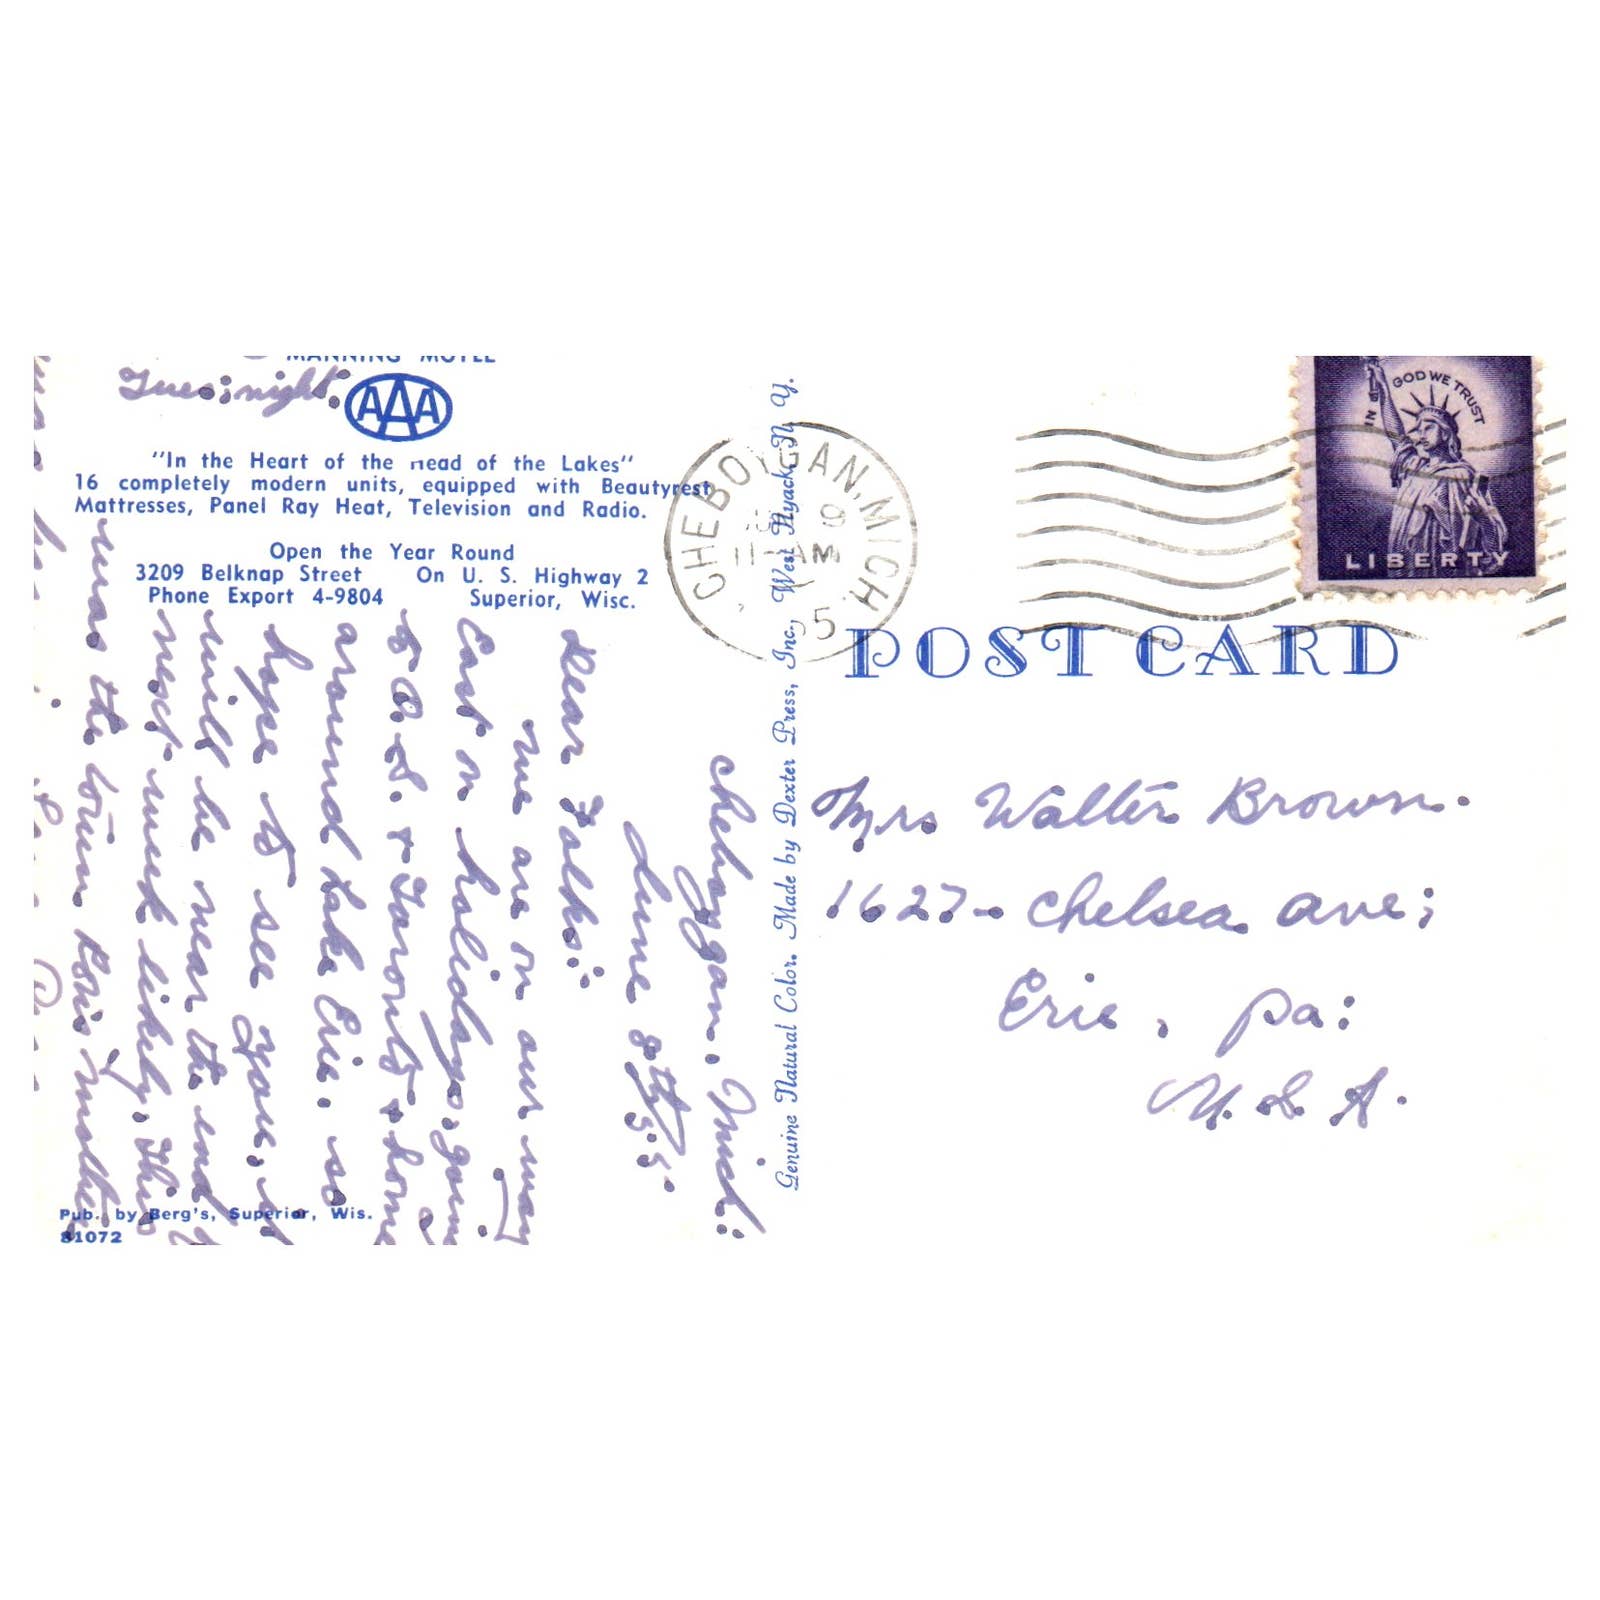 MANNING MOTEL
Tues; night.
AAA
"In the Heart of the Head of the Lakes"
16 completely modern units, equipped with Beautyrest
Mattresses, Panel Ray Heat, Television and Radio.
Open the Year Round
3209 Belknap Street On U. S. Highway 2
Phone Export 4-9804 Superior, Wisc.
Cheboygan, Mich:
June 8th, 55.
Dear Folks:
We are on our way
East on holidays, going
to O. S. & Toronto & home
around Lake Erie, so
hope to see you,
will be near the end
next week likely, this
was the town Roi's mother
Pub. by Berg's, Superior, Wis.
81072
Genuine Natural Color. Made by Dexter Press, Inc., West Nyack, N. Y.
CHEBOYGAN, MICH.
11 AM
55
IN GOD WE TRUST
LIBERTY
POST CARD
Mrs Walter Brown.
1627- Chelsea Ave;
Erie, Pa:
U. S. A.